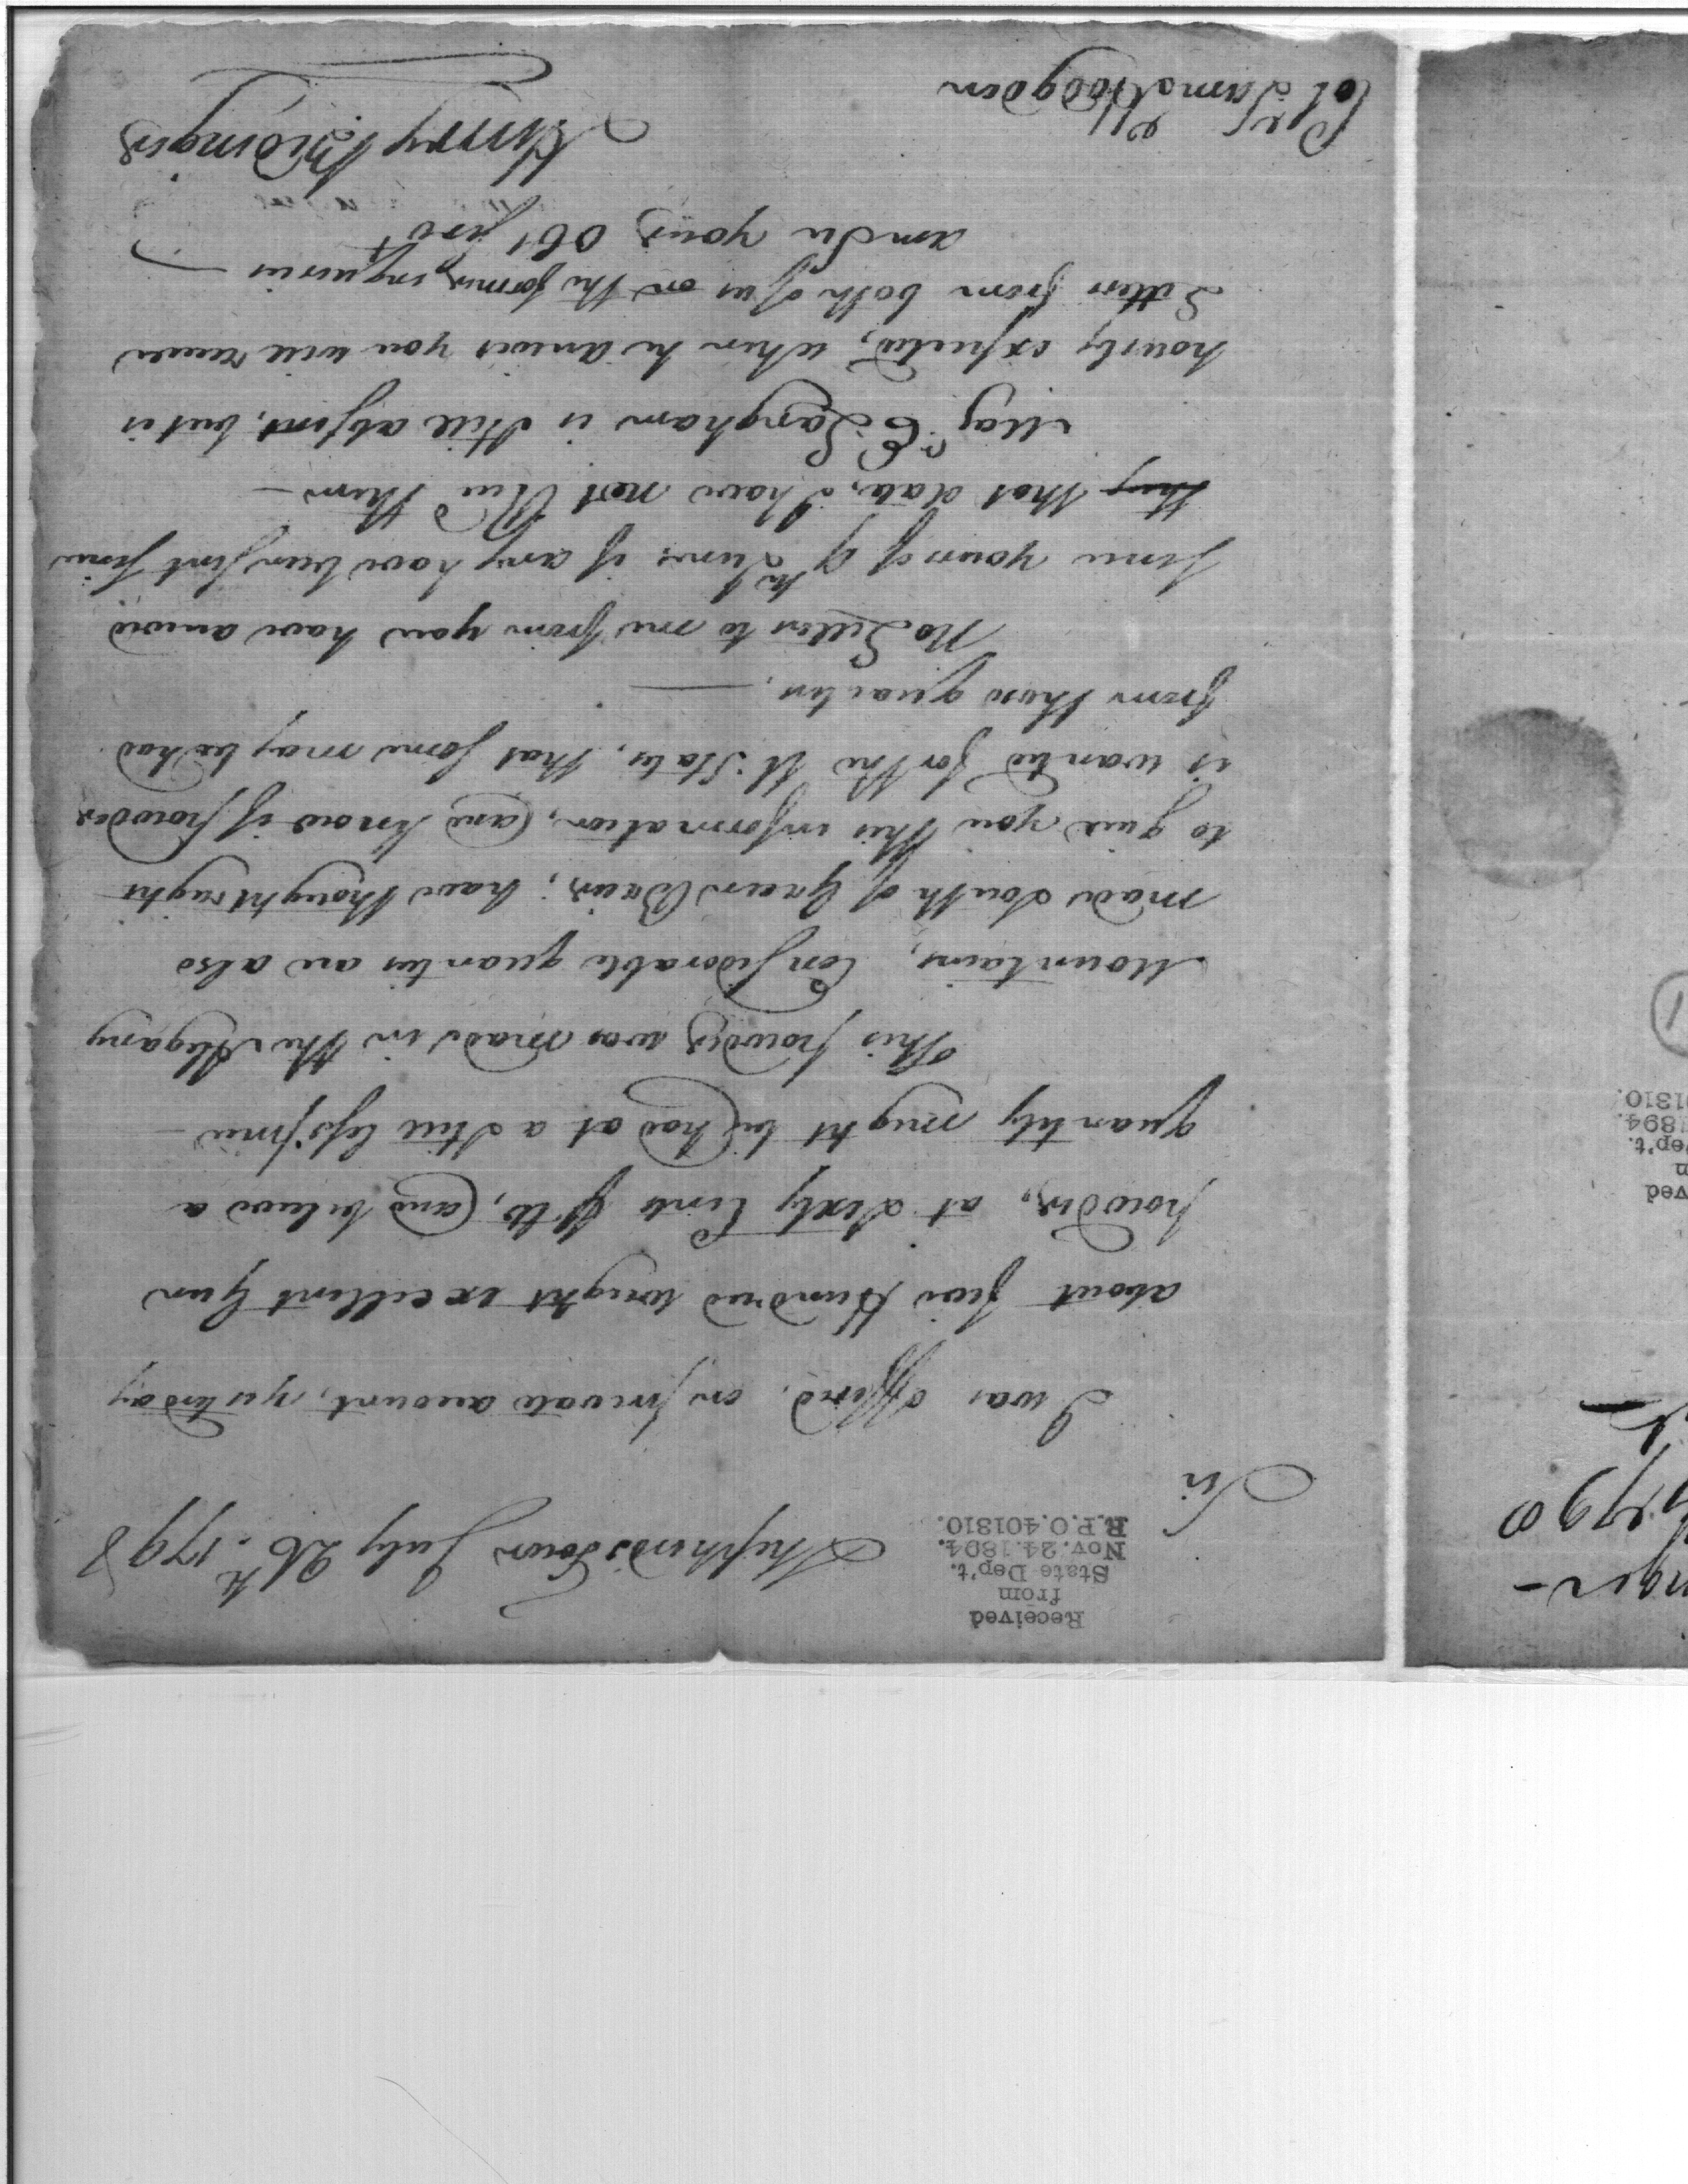 Received
from
State Dep't.
Nov. 24. 1894.
R.P.O. 401310.
Shepherds Town July 26th. 1798
Sir
I was offered, on private account, yesterday
about five Hundred weight excellent Gun
powder, at sixty Cents pr lb, and believe a
quantity might be had at a still less price —
This powder was made in the Alegany
Mountains, Considorable quanties are also
made South of Green Brier; have thought right
to give you this information, and know if powder
is wanted for the U States, that some may be had
from those quarters. —
No Letters to me from you have arived
since yours of 9th June if any have been sent since
they that date, I have not Recd them —
Majr. E Langham is still absent, but is
hourly expected, when he arives you will receive
Letters from both of us on the former inquiries —
am Sir your Obt servt
Henry Bedinger
Col Samel Hodgdon
1790
ved
Dep't.
1894.
01310.
1